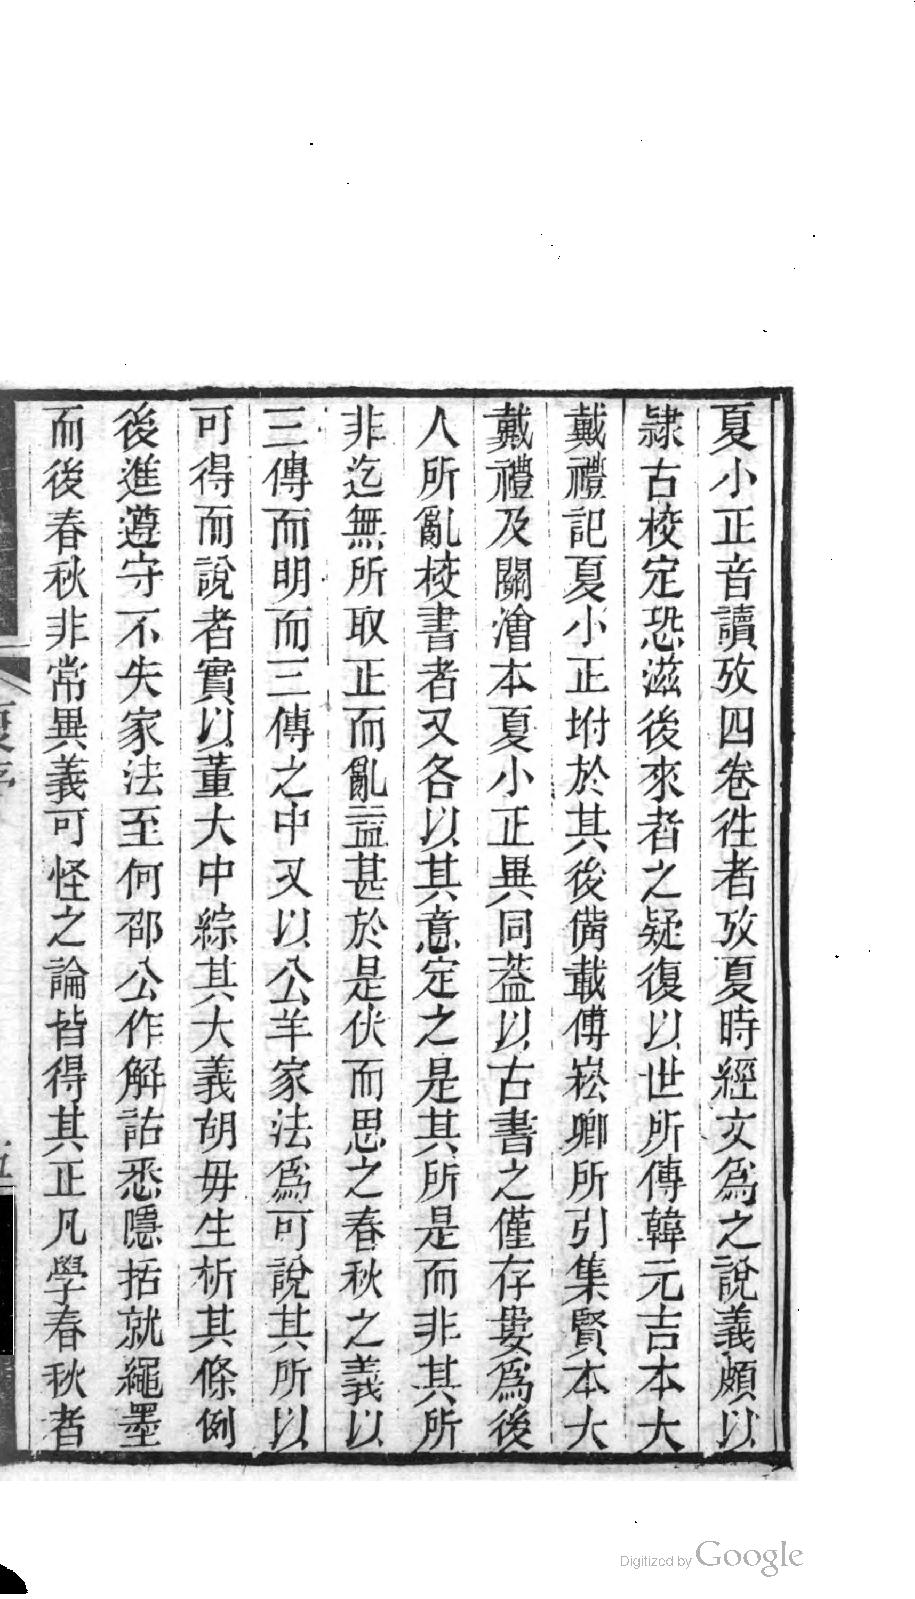 夏小正音讀攷四卷徃者攷夏時經文爲之說義頗以
隸古校定恐滋後來者之疑復以世所傳韓元吉本大
戴禮記夏小正坿於其後備載傅崧卿所引集賢本大
戴禮及關澮本夏小正異同葢以古書之僅存婁爲後
人所亂校書者又各以其意定之是其所是而非其所
非迄無所取正而亂益甚於是伏而思之春秋之義以
三傳而明而三傳之中又以公羊家法爲可說其所以
可得而說者實以董大中綜其大義胡毋生析其條例
後進遵守不失家法至何邵公作解詁悉隱括就繩墨
而後春秋非常異義可怪之論皆得其正凡學春秋者
Digitized by Google